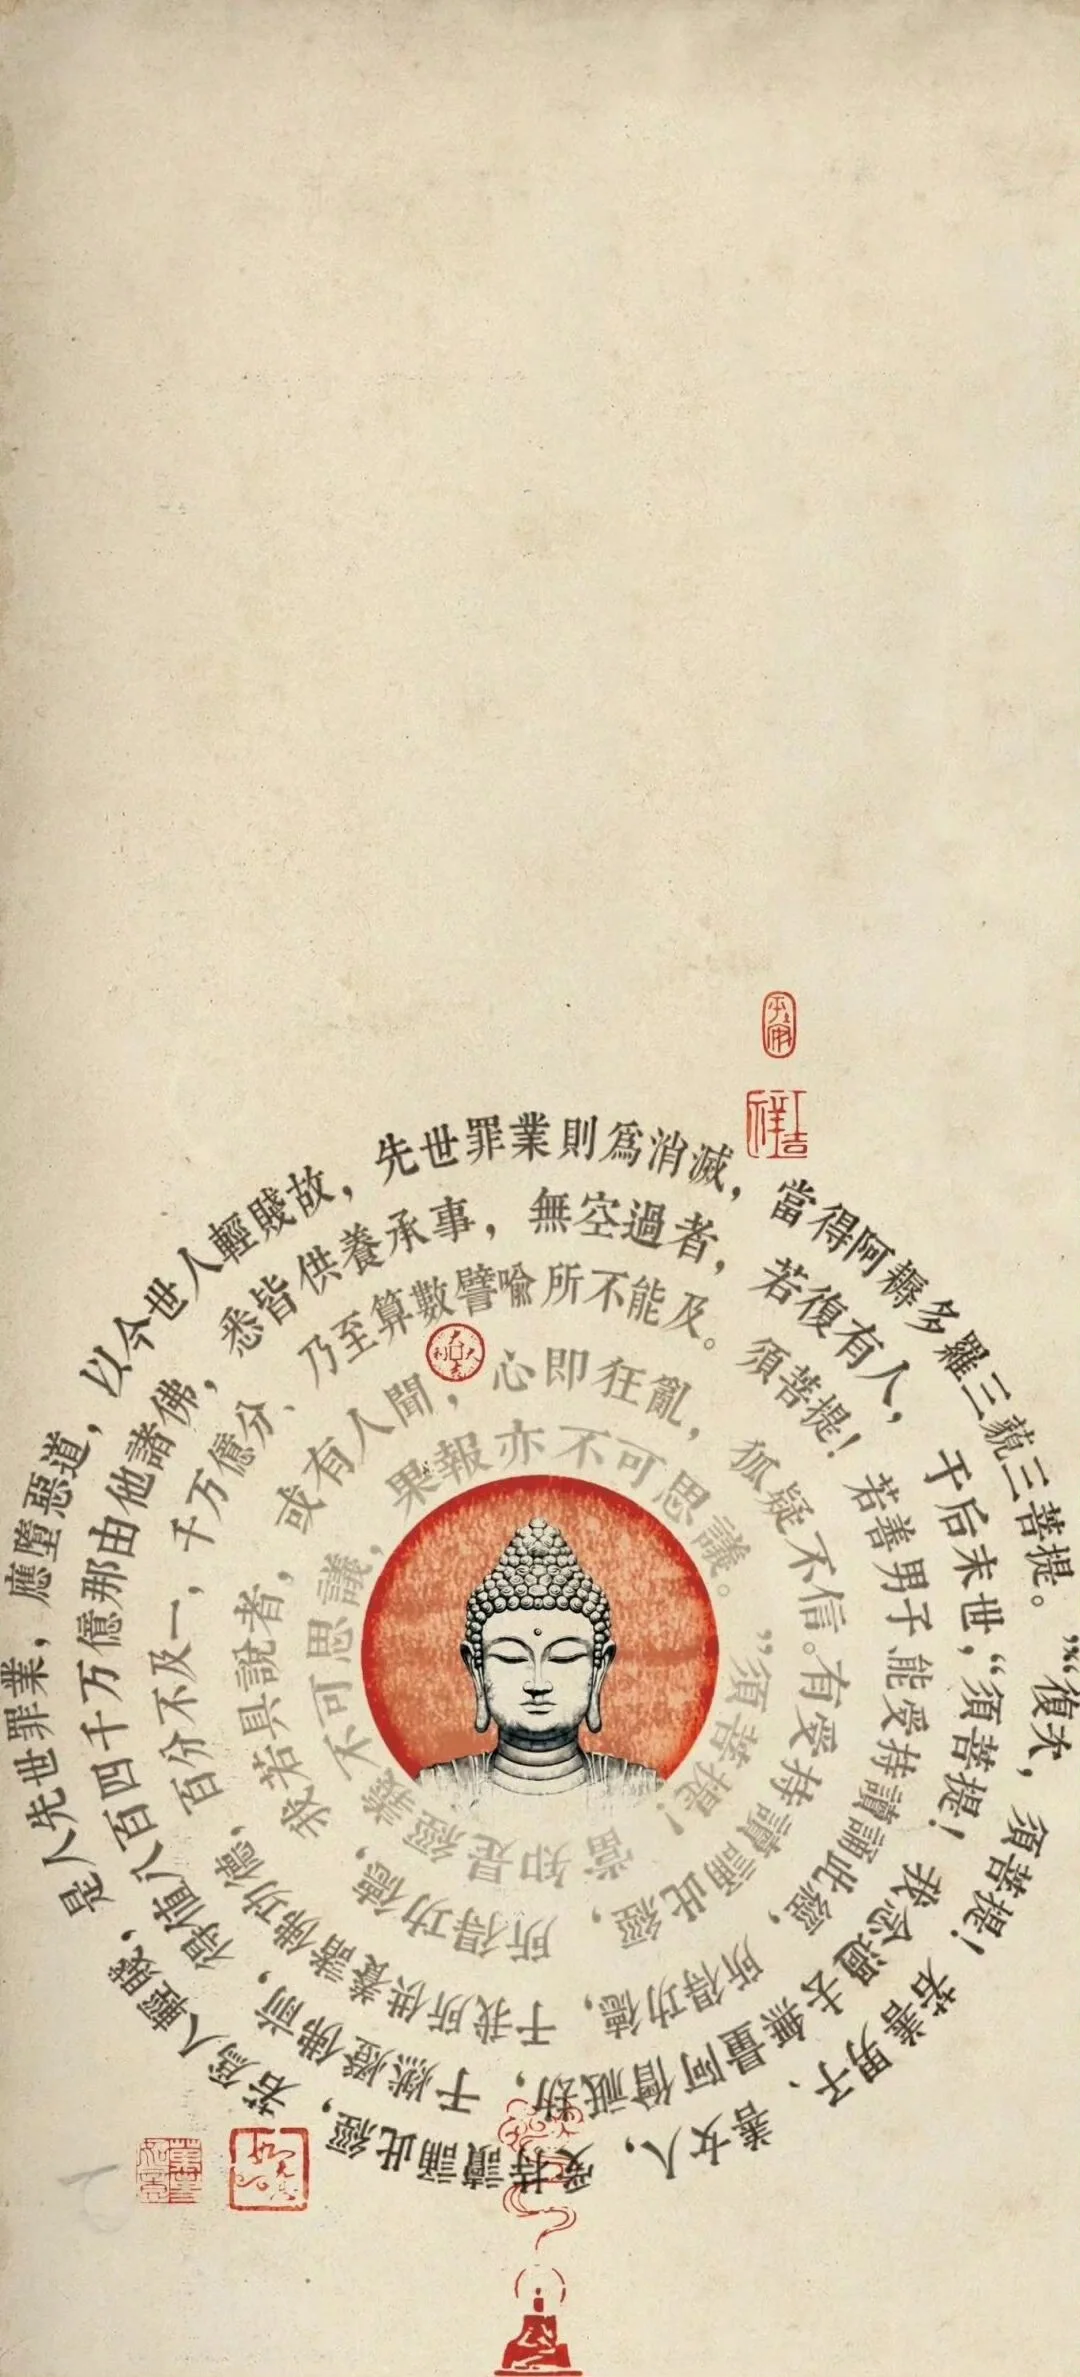 “復次，須菩提！若善男子、善女人，受持讀誦此經，若爲人輕賤，是人先世罪業，應墮惡道，以今世人輕賤故，先世罪業則爲消滅，當得阿耨多羅三藐三菩提。
“須菩提！我念過去無量阿僧祇劫，于燃燈佛前，得值八百四千万億那由他諸佛，悉皆供養承事，無空過者，若復有人，于后未世，
能受持讀誦此經，所得功德，于我所供養諸佛功德，百分不及一，千万億分、乃至算數譬喻所不能及。須菩提！若善男子
有受持讀誦此經，所得功德，我若具說者，或有人聞，心即狂亂，狐疑不信。
“須菩提！當知是經義不可思議，果報亦不可思議。
吉祥
大吉大利